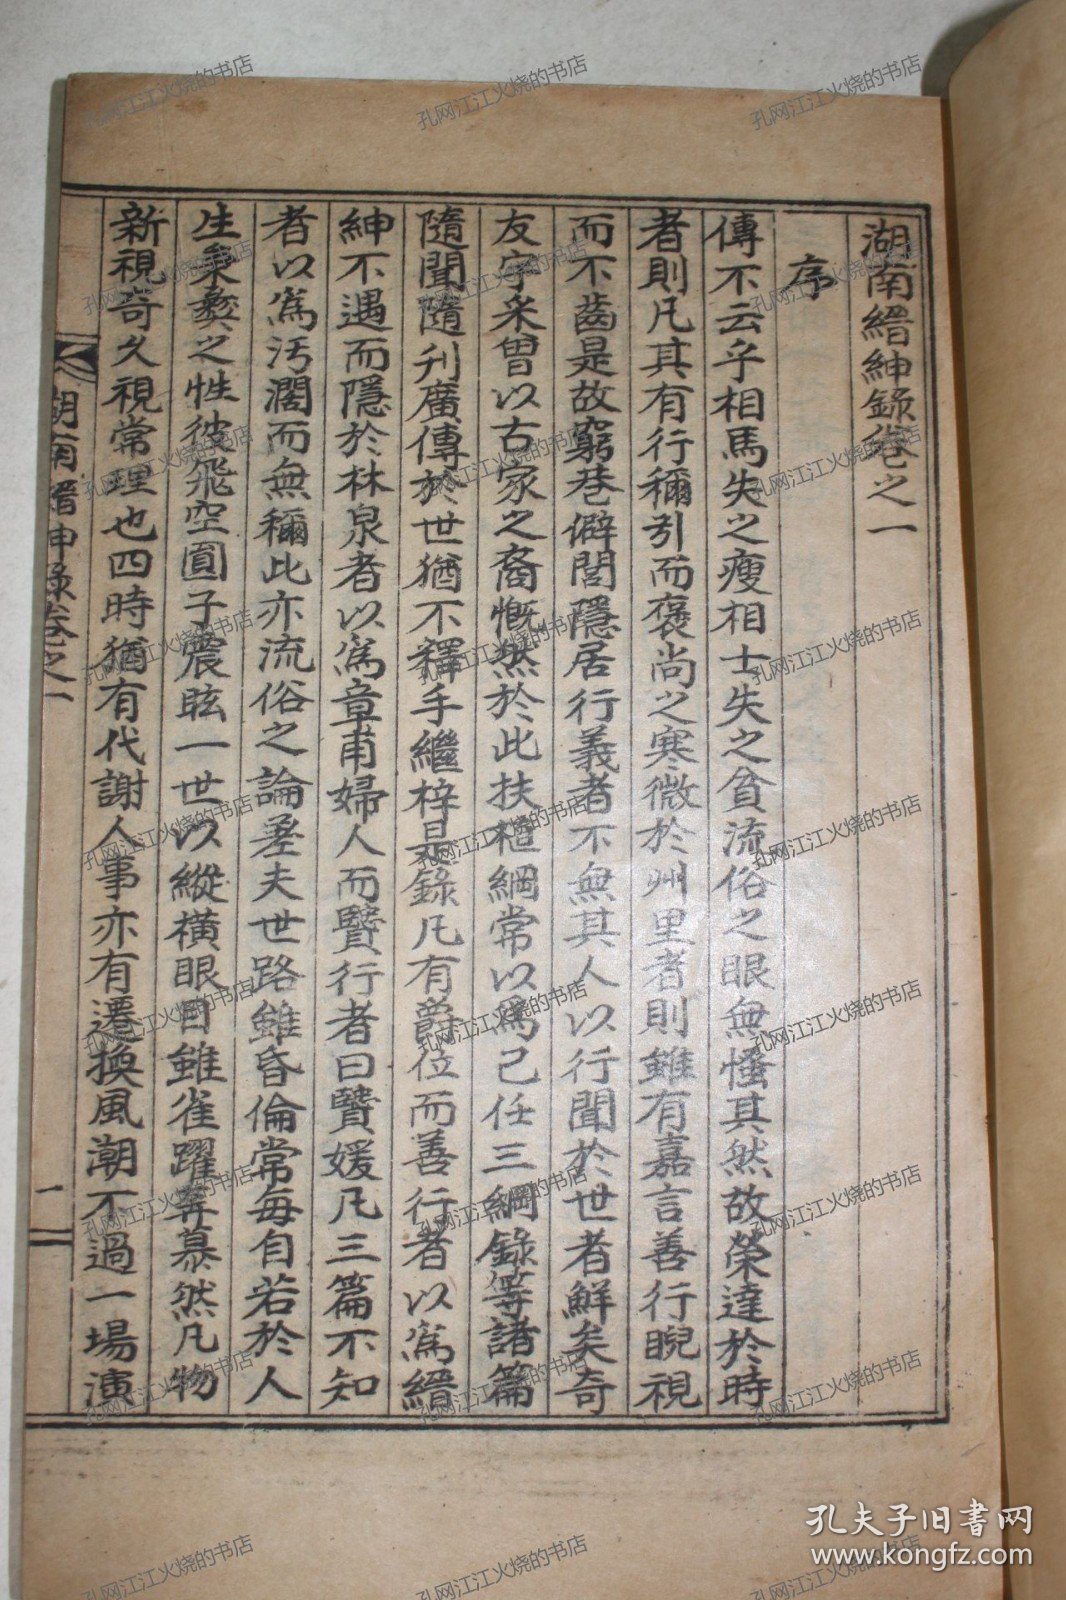 湖南縉紳錄卷之一
序
傳不云乎相馬失之瘦相士失之貧流俗之眼無慅其然故榮達於時
者則凡其有行稱引而褒尚之寒微於州里者則雖有嘉言善行睨視
而不齒是故窮巷僻閭隱居行義者不無其人以行聞於世者鮮矣奇
友宇采曾以古家之裔慨然於此扶植綱常以爲己任三綱錄等諸篇
隨聞隨刊廣傳於世猶不釋手繼梓是錄凡有爵位而善行者以爲縉
紳不遇而隱於林泉者以爲章甫婦人而賢行者曰賢媛凡三篇不知
者以爲汚濶而無稱此亦流俗之論差夫世路雖昏倫常每自若於人
生秉彜之性彼飛空圓子震眩一世以縱橫眼目雖雀躍奔慕然凡物
新視奇久視常理也四時猶有代謝人事亦有遷換風潮不過一場演
湖南縉紳錄卷之一
一
孔夫子旧书网
www.kongfz.com
孔网江江火烧的书店